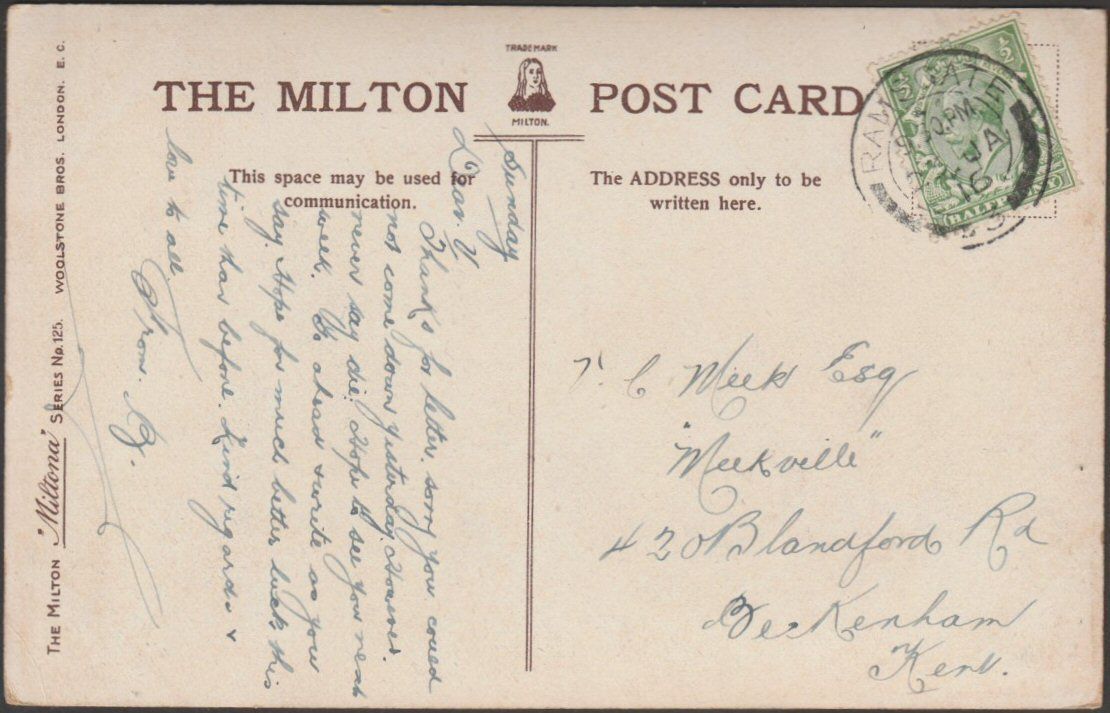 TRADE MARK
MILTON.
THE MILTON POST CARD
This space may be used for
communication.
The ADDRESS only to be
written here.
THE MILTON "Miltona" SERIES No. 125. WOOLSTONE BROS. LONDON. E. C.
RAMSGATE
PM
JA
16
HALFP
Sunday
Dear V
Thanks for letter. sorry you could
not come down yesterday. However
never say die. Hope to see you next
week. Go ahead & write as you
say. Hope for much better luck this
time than before. Kind regards &
love to all.
From.
C Meek Esq
"Meekville"
420 Blandford Rd
Beckenham
Kent.